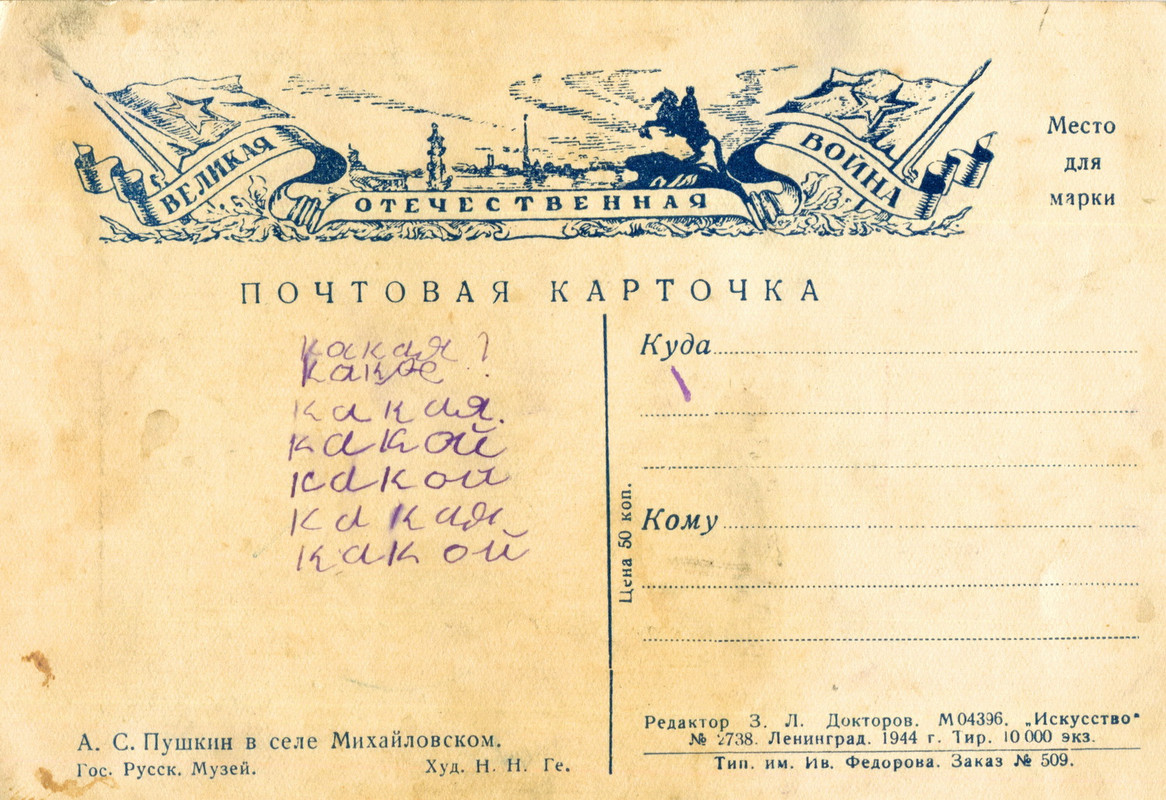 ВЕЛИКАЯ ОТЕЧЕСТВЕННАЯ ВОЙНА
Место
для
марки
ПОЧТОВАЯ КАРТОЧКА
какая?
какое
какая.
какой
какой
какая
какой
Цена 50 коп.
Куда
Кому
А. С. Пушкин в селе Михайловском.
Гос. Русск. Музей. Худ. Н. Н. Ге.
Редактор З. Л. Докторов. М 04396. „Искусство"
№ 2738. Ленинград. 1944 г. Тир. 10 000 экз.
Тип. им. Ив. Федорова. Заказ № 509.